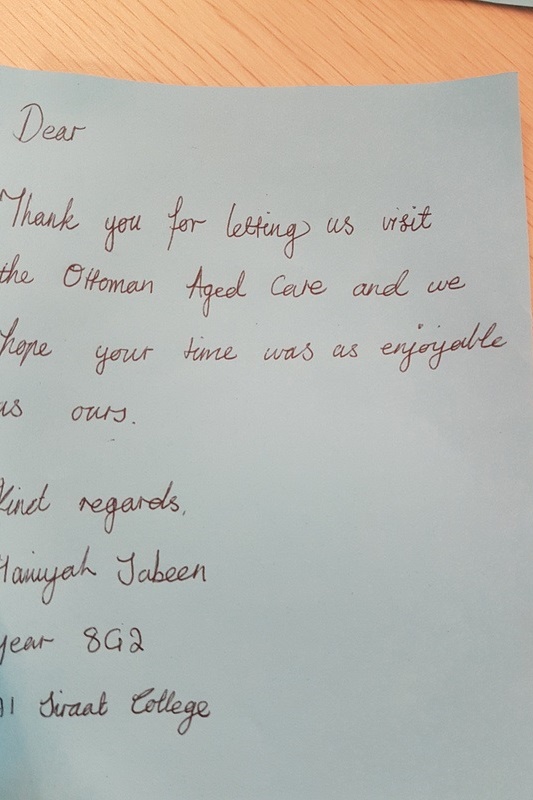 Dear
Thank you for letting us visit
the Ottoman Aged Care and we
hope your time was as enjoyable
as ours.
Kind regards,
Haniyah Jabeen
Year 8G2
Al Siraat College